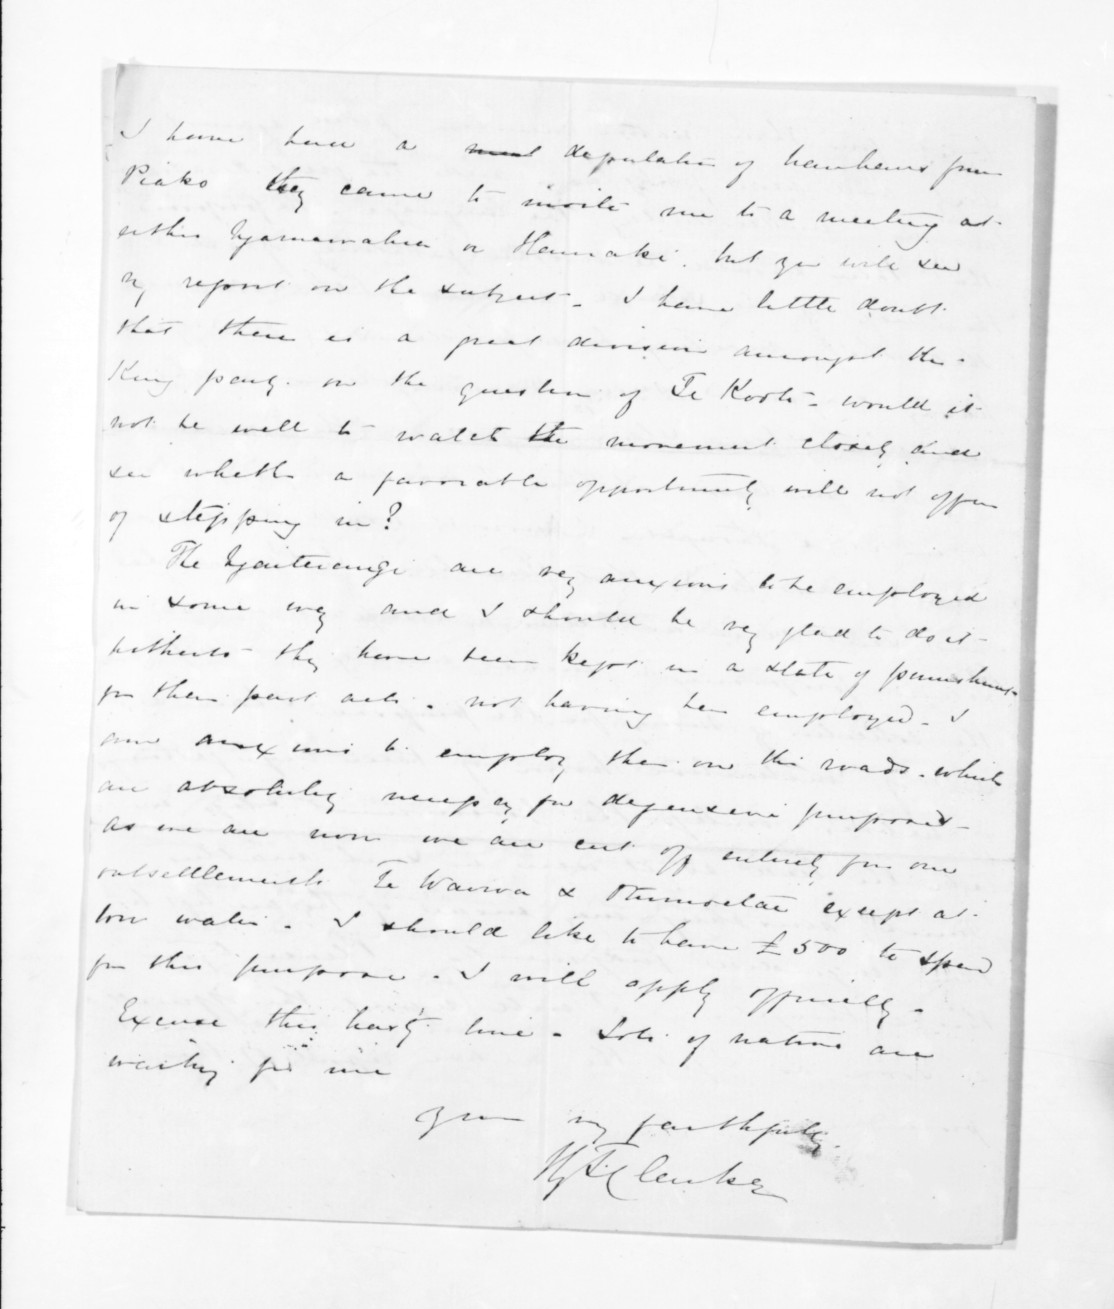 I have had a deputation of hauhaus from
Piako they came to invite me to a meeting at
either Ngaruawahia or Hauraki. but you will see
my report on the subject. I have little doubt
that there is a great division amongst the
King party on the question of Te Kooti. would it
not be well to watch the movement closely and
see whether a favorable opportunity will not offer
of stepping in?
The Ngaiterangi are very anxious to be employed
in some way and I should be very glad to do it
hitherto they have been kept in a state of punishment
for their past acts. not having been employed. I
am anxious to employ them on the roads. which
are absolutely necessary for defensive purposes
as we are now we are cut off entirely from our
outsettlements Te Wairoa & except at
low water. I should like to have £500 to spend
for this purpose. I will apply officially.
Excuse this hasty line. Lots of natives are
waiting for me
Yours very faithfully.
H T Clarke